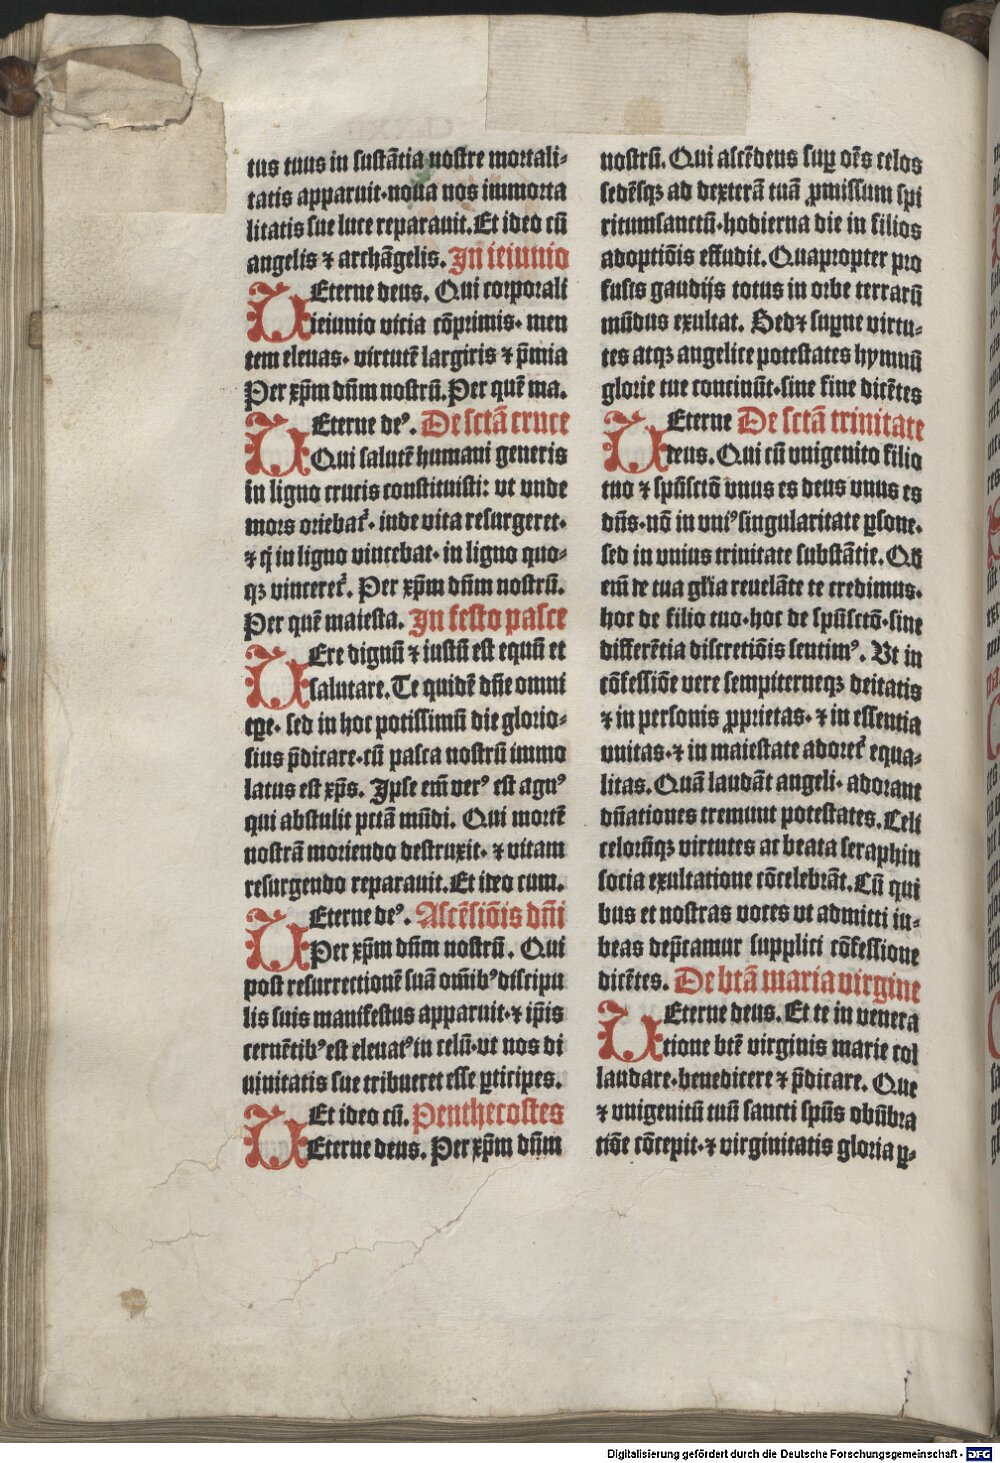 tus tuus in sustãtia nostre mortali-
tatis apparuit·noua nos immorta
litatis sue luce reparauit. Et ideo cũ
angelis ⁊ archãgelis. In ieiunio
UEterne deus. Qui corporali
ieiunio vicia cõprimis· men
tem eleuas· virtutẽ largiris ⁊ p̃mia
Per xp̃m dñm nostrũ. Per quẽ ma.
UEterne deꝰ. De sctã cruce
Qui salutẽ humani generis
in ligno crucis constituisti: vt vnde
mors oriebat᷑· inde vita resurgeret·
⁊ q̇ in ligno vincebat· in ligno quo-
qꝫ vinceret᷑. Per xp̃m dñm nostrũ.
Per quẽ maiesta. In festo pasce
UEre dignũ ⁊ iustũ est equũ et
salutare. Te quidẽ dñe omni
tꝑe· sed in hoc potissimũ die glorio-
sius p̃dicare·cũ pasca nostrũ immo
latus est xp̃s. Ipse em̃ verꝰ est agnꝰ
qui abstulit pctã mũdi. Qui mortẽ
nostrã moriendo destruxit· ⁊ vitam
resurgendo reparauit. Et ideo cum.
UEterne deꝰ. Ascẽsiõis dñi
Per xp̃m dñm nostrũ. Qui
post resurrectionẽ suã om̃ibꝰ discipu
lis suis manifestus apparuit·⁊ ip̃is
cernẽtibꝰ est eleuatꝰ in celũ·vt nos di
uinitatis sue tribueret esse ꝑticipes.
UEt ideo cũ. Penthecostes
Eterne deus. Per xp̃m dñm
nostrũ. Qui ascẽdens suꝑ oẽs celos
sedẽsqꝫ ad dexterã tuã ꝓmissum spi
ritumsanctũ·hodierna die in filios
adoptiõis effudit. Quapropter pro
fusis gaudijs totus in orbe terrarũ
mũdus exultat. Sedꝫ suꝑne virtu-
tes atqꝫ angelice potestates hymnũ
glorie tue concinũt·sine fine dicẽtes
UEterne De sctã trinitate
deus. Qui cũ vnigenito filio
tuo ⁊ spũsctõ vnus es deus vnus es
dñs·nõ in vniꝰ singularitate ꝑsone·
sed in vnius trinitate substãtie. Qď
em̃ de tua gl̃ia reuelãte te credimus·
hoc de filio tuo·hoc de spũsctõ·sine
differẽtia discretiõis sentimꝰ. Vt in
cõfessiõe vere sempiterneqꝫ deitatis
⁊ in personis ꝓprietas·⁊ in essentia
vnitas·⁊ in maiestate adoret᷑ equa-
litas. Quã laudãt angeli· adorant
dñationes tremunt potestates. Celi
celorũqꝫ virtutes ac beata seraphin
socia exultatione cõcelebrãt. Cũ qui
bus et nostras voces vt admitti iu-
beas dep̃camur supplici cõfessione
dicẽtes. De btã maria virgine
UEterne deus. Et te in venera
tione btẽ virginis marie col
laudare·benedicere ⁊ p̃dicare. Que
⁊ vnigenitũ tuũ sancti spũs obũbra
tiõe cõcepit·⁊ virginitatis gloria ꝑ-
Digitalisierung gefördert durch die Deutsche Forschungsgemeinschaft - DFG